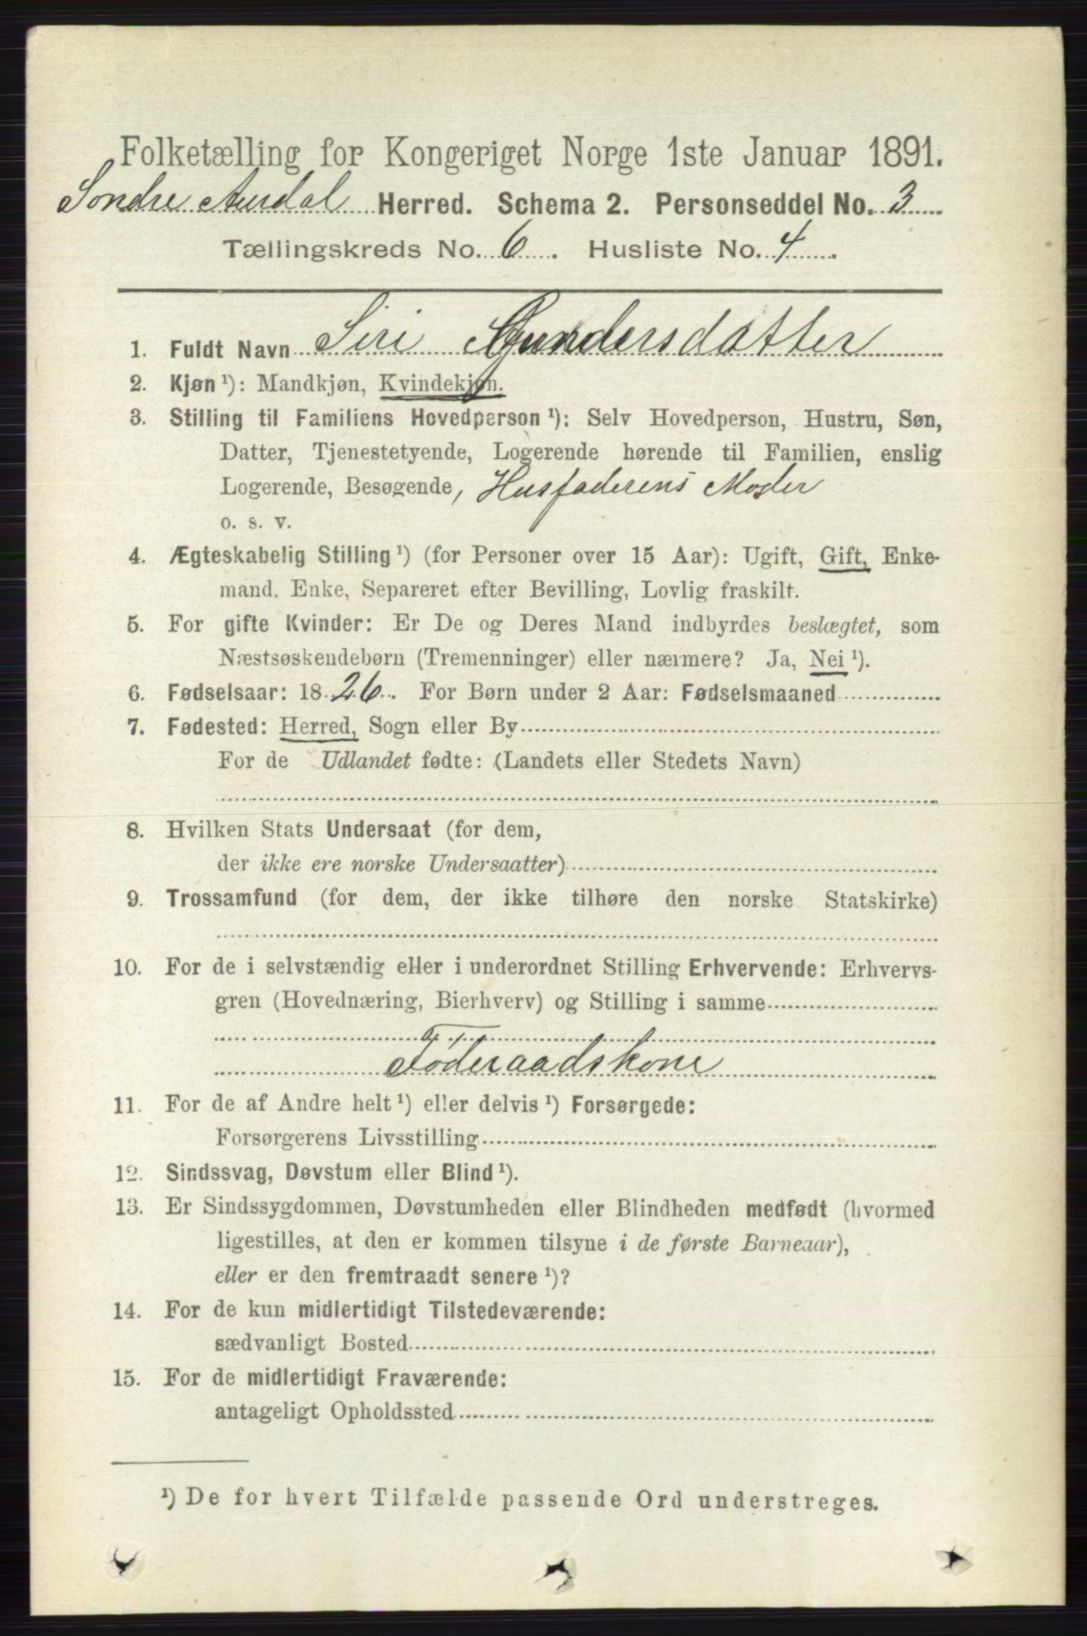 Folketælling for Kongeriget Norge 1ste Januar 1891.
Søndre Aurdal Herred. Schema 2. Personseddel No. 3
Tællingskreds No. 6. Husliste No. 4.
1. Fuldt Navn Siri Gundersdatter
2. Kjøn ¹): Mandkjøn, Kvindekjøn.
3. Stilling til Familiens Hovedperson ¹): Selv Hovedperson, Hustru, Søn,
Datter, Tjenestetyende, Logerende hørende til Familien, enslig
Logerende, Besøgende, Husfaderens Moder
o. s. v.
4. Ægteskabelig Stilling ¹) (for Personer over 15 Aar): Ugift, Gift, Enke-
mand, Enke, Separeret efter Bevilling, Lovlig fraskilt.
5. For gifte Kvinder: Er De og Deres Mand indbyrdes beslægtet, som
Næstsøskendebørn (Tremenninger) eller nærmere? Ja, Nei ¹).
6. Fødselsaar: 1826. For Børn under 2 Aar: Fødselsmaaned
7. Fødested: Herred, Sogn eller By
For de Udlandet fødte: (Landets eller Stedets Navn)
8. Hvilken Stats Undersaat (for dem,
der ikke ere norske Undersaatter)
9. Trossamfund (for dem, der ikke tilhøre den norske Statskirke)
10. For de i selvstændig eller i underordnet Stilling Erhvervende: Erhvervs-
gren (Hovednæring, Bierhverv) og Stilling i samme
Føderaadskone
11. For de af Andre helt ¹) eller delvis ¹) Forsørgede:
Forsørgerens Livsstilling
12. Sindssvag, Døvstum eller Blind ¹).
13. Er Sindssygdommen, Døvstumheden eller Blindheden medfødt (hvormed
ligestilles, at den er kommen tilsyne i de første Barneaar),
eller er den fremtraadt senere ¹)?
14. For de kun midlertidigt Tilstedeværende:
sædvanligt Bosted
15. For de midlertidigt Fraværende:
antageligt Opholdssted
¹) De for hvert Tilfælde passende Ord understreges.